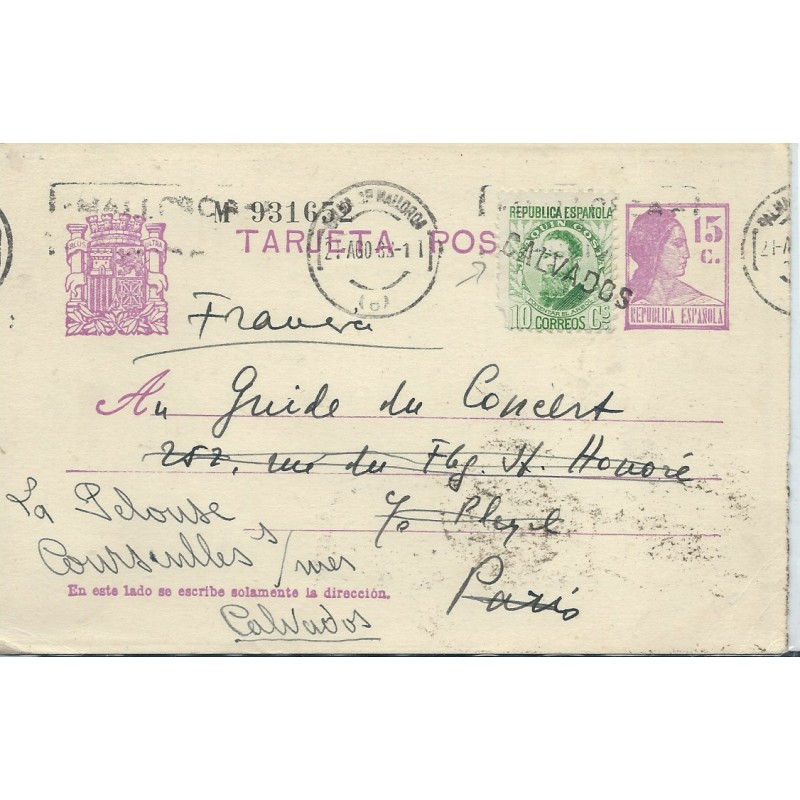 MALLORCA
M 931652
TARJETA POS
PALMA DE MALLORCA
21-AGO 35-11
(6)
REPUBLICA ESPAÑOLA
JOAQUIN COSTA
CALVADOS
10 CORREOS Cs
15
C.
REPUBLICA ESPAÑOLA
21-A
Francia
Au Guide du Concert
252, rue du Fbg. St. Honoré
La Pelouse
c/o Pleyel
Courseulles s/mer
En este lado se escribe solamente la dirección.
Paris
Calvados